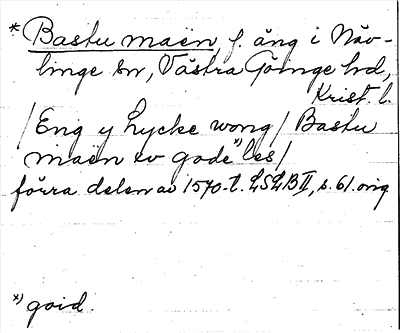 * Bastu maën, f. äng i Näv-
linge sn, Västra Göinge hd,
Krist. l.
/Eng y Lycke wong/ Bastu
maën xv gode *) les/
förra delen av 1570-t. LSLB II, s. 61. orig
*) goid.